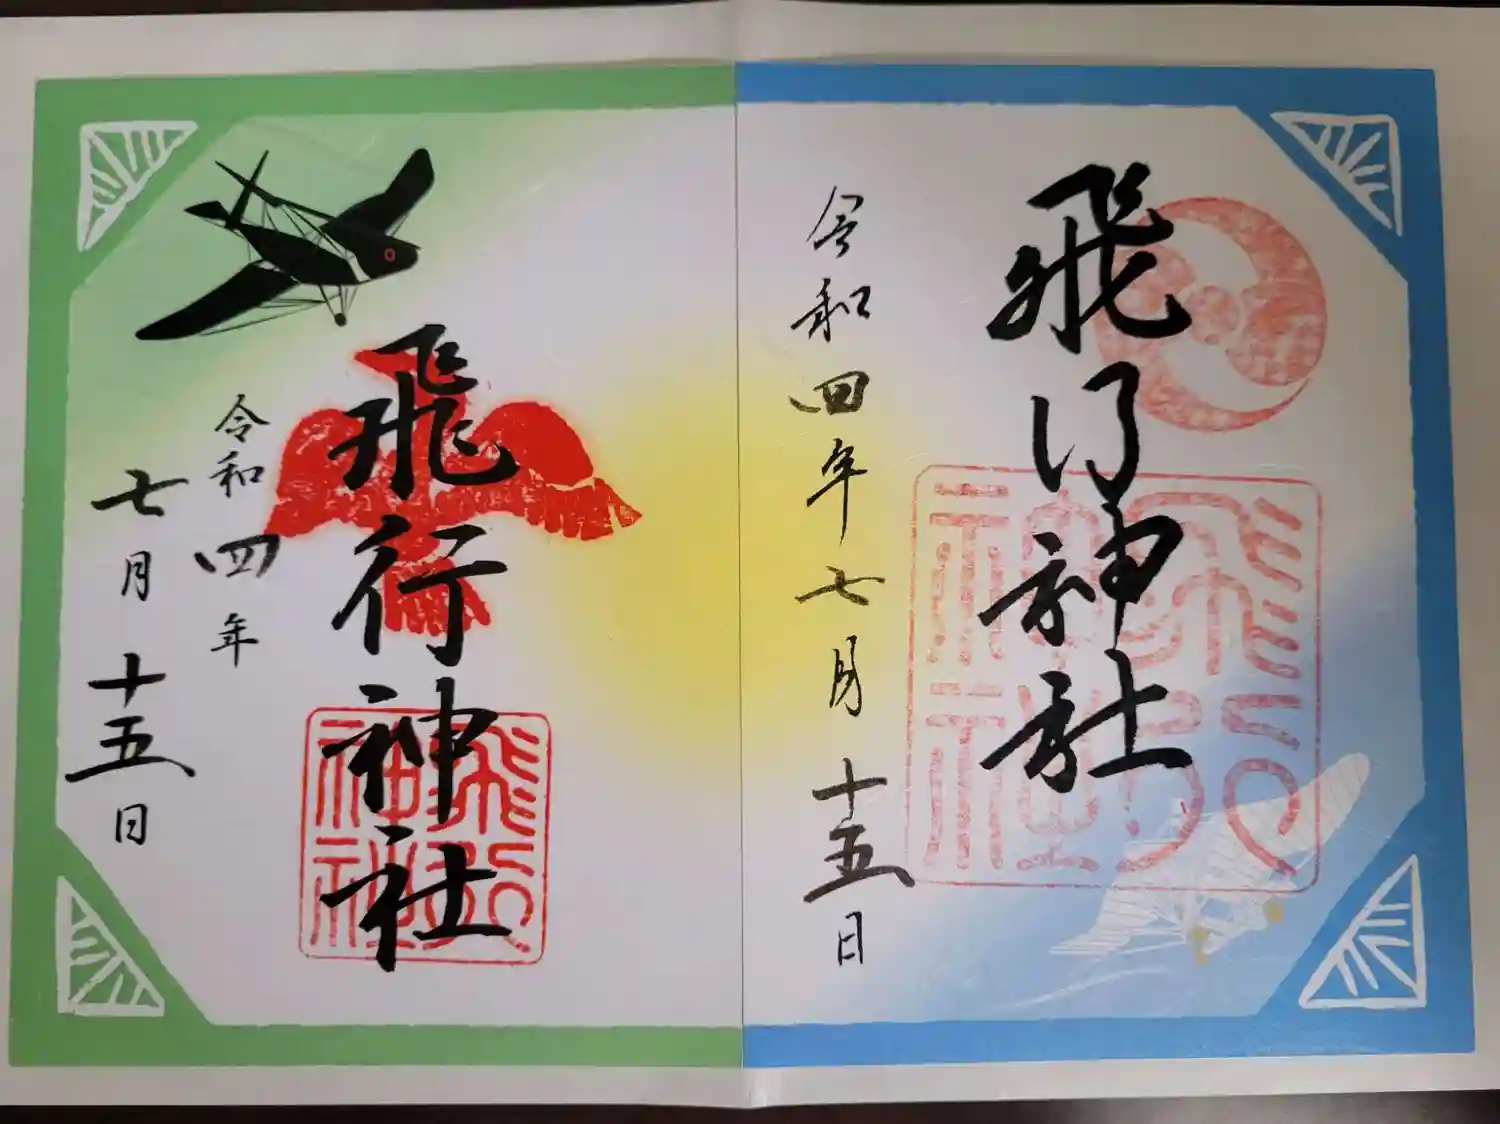 飛行神社
令和四年七月十五日
飛行神社
令和四年
七月十五日
飛行神社
飛行神社